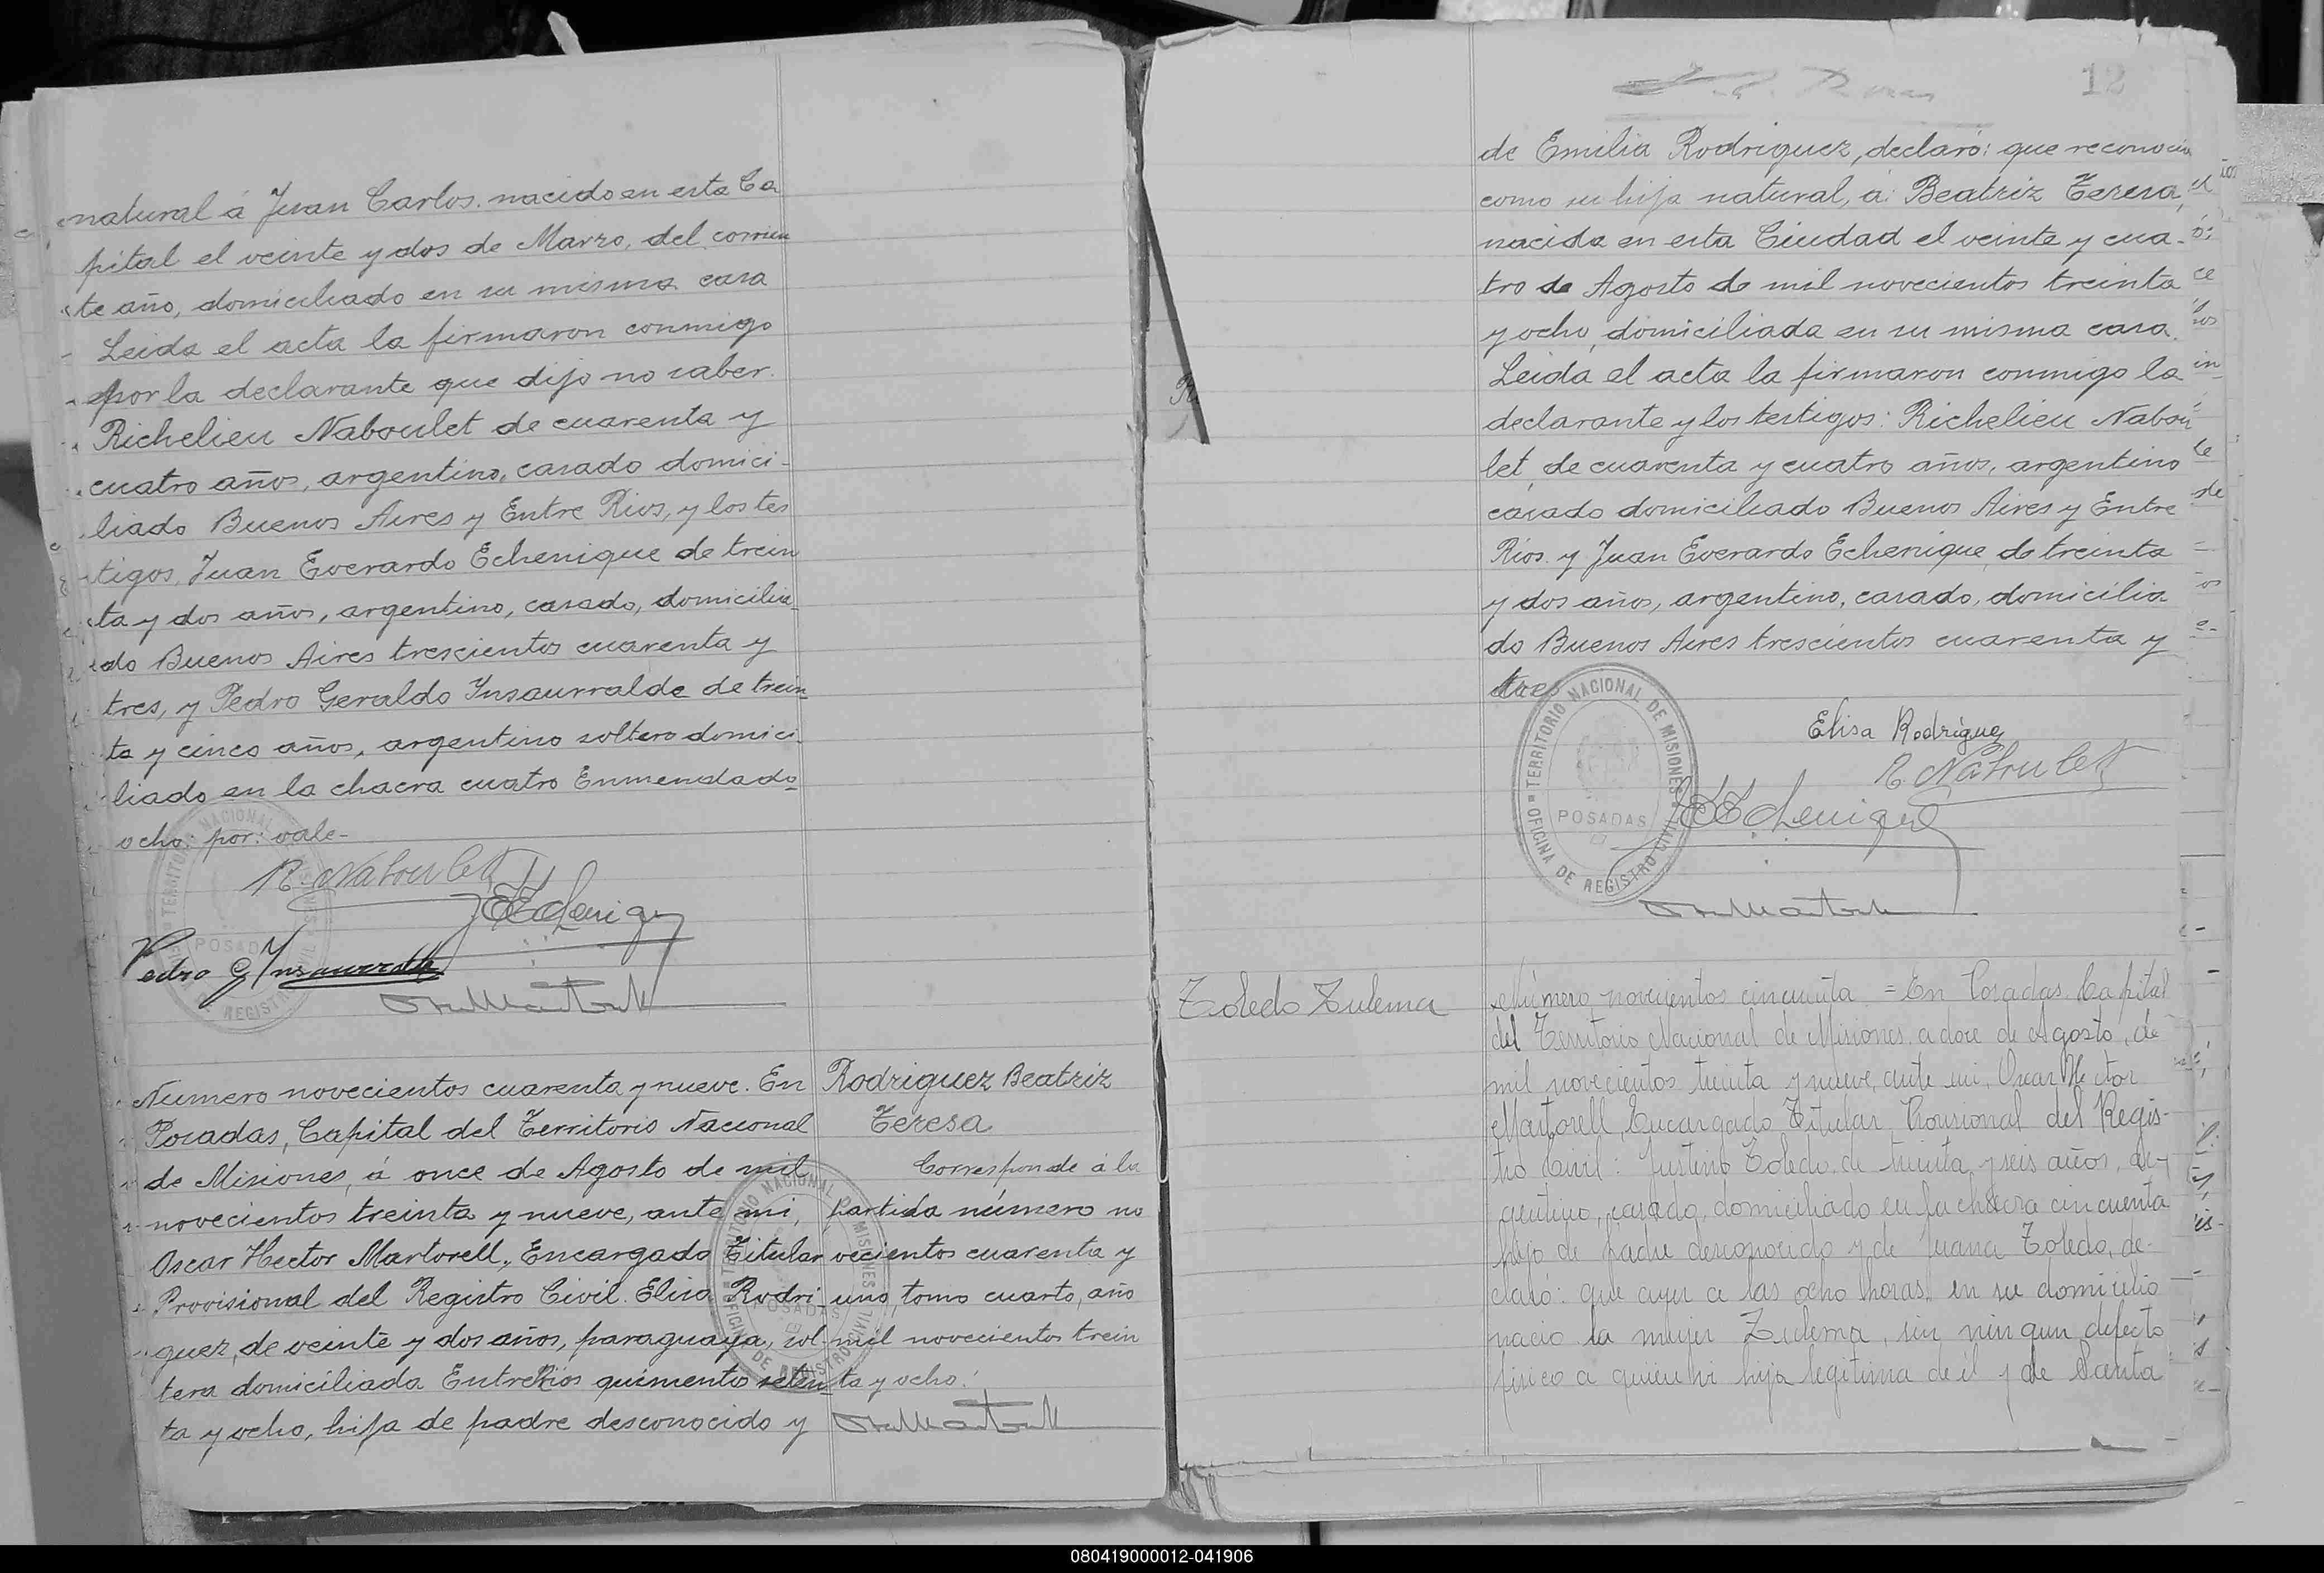 natural á Juan Carlos. nacido en esta Ca
pital el veinte y dos de Marzo, del corrien
te año, domiciliado en su misma casa
Leida el acta la firmaron conmigo
por la declarante que dijo no saber.
Richelieu Naboulet de cuarenta y
cuatro años, argentino, casado domici-
liado Buenos Aires y Entre Rios, y los tes
tigos, Juan Everardo Echenique de trein
ta y dos años, argentino, casado, domicilia
do Buenos Aires trescientos cuarenta y
tres, y Pedro Geraldo Insaurralde de trein
ta y cinco años, argentino soltero domici
liado en la chacra cuatro Enmendado
ocho: por: vale-
R. Naboulet
Pedro G Insaurralde
TERRITORIO NACIONAL DE MISIONES
POSADAS
Numero novecientos cuarenta y nueve. En
Posadas, Capital del Territorio Nacional
de Misiones, á once de Agosto de mil
novecientos treinta y nueve, ante mi,
Oscar Hector Martorell, Encargado Titular
Provisional del Registro Civil. Elisa Rodri
guez, de veinte y dos años, paraguaya, sol
tera domiciliada Entre Rios quinientos seten
ta y ocho, hija de padre desconocido y
Rodriguez Beatriz
Teresa
Corresponde á la
partida número no
vecientos cuarenta y
uno, tomo cuarto, año
mil novecientos trein
ta y ocho.
12
de Emilia Rodriguez, declaró: que reconocia
como su hija natural, á: Beatriz Teresa,
nacida en esta Ciudad el veinte y cua-
tro de Agosto de mil novecientos treinta
y ocho, domiciliada en su misma casa.
Leida el acta la firmaron conmigo la
declarante y los testigos: Richelieu Nabou
let, de cuarenta y cuatro años, argentino
casado domiciliado Buenos Aires y Entre
Rios. y Juan Everardo Echenique, de treinta
y dos años, argentino, casado, domicilia
do Buenos Aires trescientos cuarenta y
tres
Elisa Rodriguez
R. Naboulet
TERRITORIO NACIONAL DE MISIONES
POSADAS
OFICINA DE REGISTRO CIVIL
Toledo Zulema
Número novecientos cincuenta = En Posadas. Capital
del Territorio Nacional de Misiones. a doce de Agosto, de
mil novecientos treinta y nueve, ante mi, Oscar Hector
Martorell, Encargado Titular Provisional del Regis-
tro Civil: Justino Toledo. de treinta y seis años, ar-
gentino, casado, domiciliado en la chacra cincuenta
hijo de padre desconocido y de Juana Toledo, de-
claró: que ayer a las ocho horas, en su domicilio
nacio la mujer Zulema, sin ningun defecto
fisico a quien hija legitima de él y de Santa
080419000012-041906